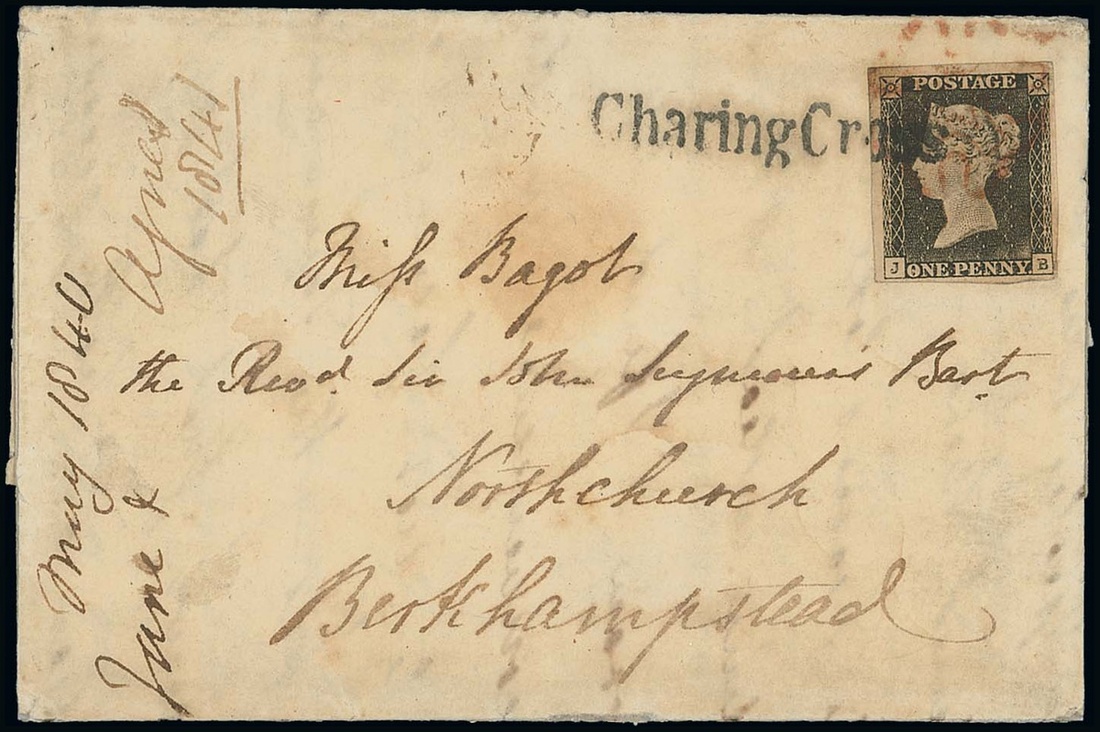 Charing Cross
POSTAGE
J ONE PENNY B
Miss Bagot
the Revd. Sir John Seymour's Bart.
Northchurch
Berkhampstead
May 1840
June &
Agnes
1841